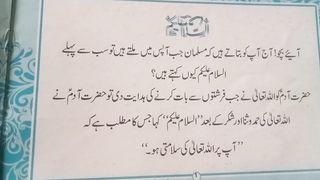 السلام علیکم
آیئے بچو! آج آپ کو بتاتے ہیں کہ مسلمان جب آپس میں ملتے ہیں تو سب سے پہلے
السلام علیکم کیوں کہتے ہیں؟
حضرت آدمؑ کو اللہ تعالیٰ نے جب فرشتوں سے بات کرنے کی ہدایت دی تو حضرت آدمؑ نے
اللہ تعالیٰ کی حمد و ثنا اور شکر کے بعد "السلام علیکم" کہا جس کا مطلب ہے کہ
"آپ پر اللہ تعالیٰ کی سلامتی ہو۔"